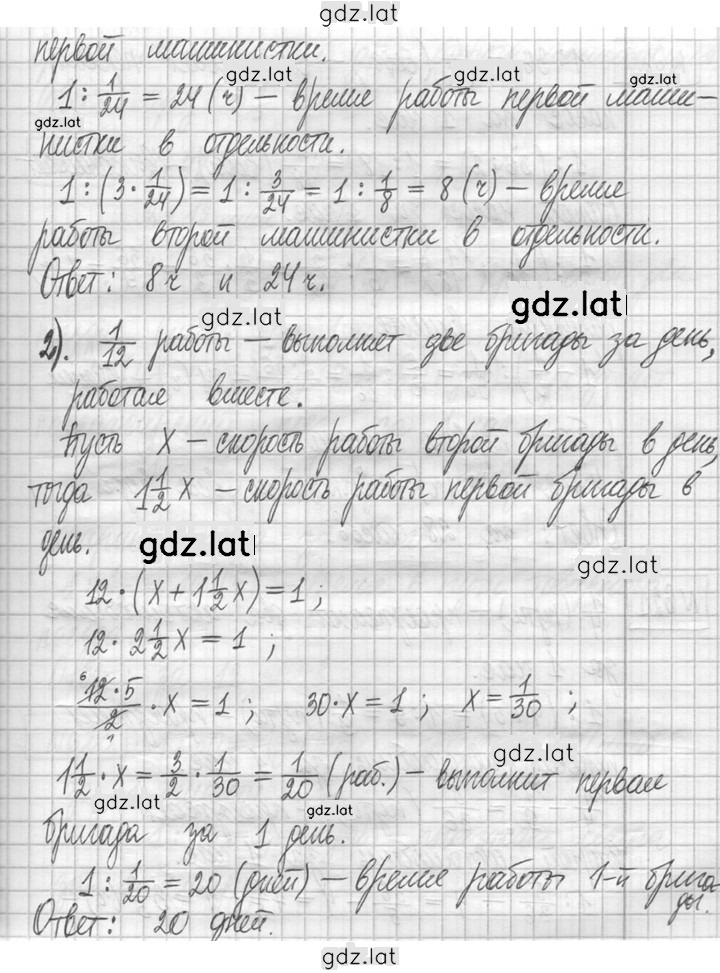 gdz.lat
первой машинистки.
gdz.lat gdz.lat gdz.lat
1 : 1/24 = 24 (ч) — время работы первой маши-
gdz.lat
нистки в отдельности.
1 : (3 · 1/24) = 1 : 3/24 = 1 : 1/8 = 8 (ч) — время
работы второй машинистки в отдельности.
Ответ: 8 ч и 24 ч.
gdz.lat gdz.lat
2). 1/12 работы — выполняет две бригады за день,
работая вместе.
Пусть x — скорость работы второй бригады в день,
тогда 1 1/2 x — скорость работы первой бригады в
день.
gdz.lat gdz.lat
12 · (x + 1 1/2 x) = 1 ;
12 · 2 1/2 x = 1 ;
12 · 5/2 · x = 1 ; 30 · x = 1 ; x = 1/30 ;
gdz.lat
1 1/2 · x = 3/2 · 1/30 = 1/20 (раб.) — выполнит первая
gdz.lat gdz.lat
бригада за 1 день.
1 : 1/20 = 20 (дней) — время работы 1-й брига
ды.
Ответ: 20 дней.
gdz.lat